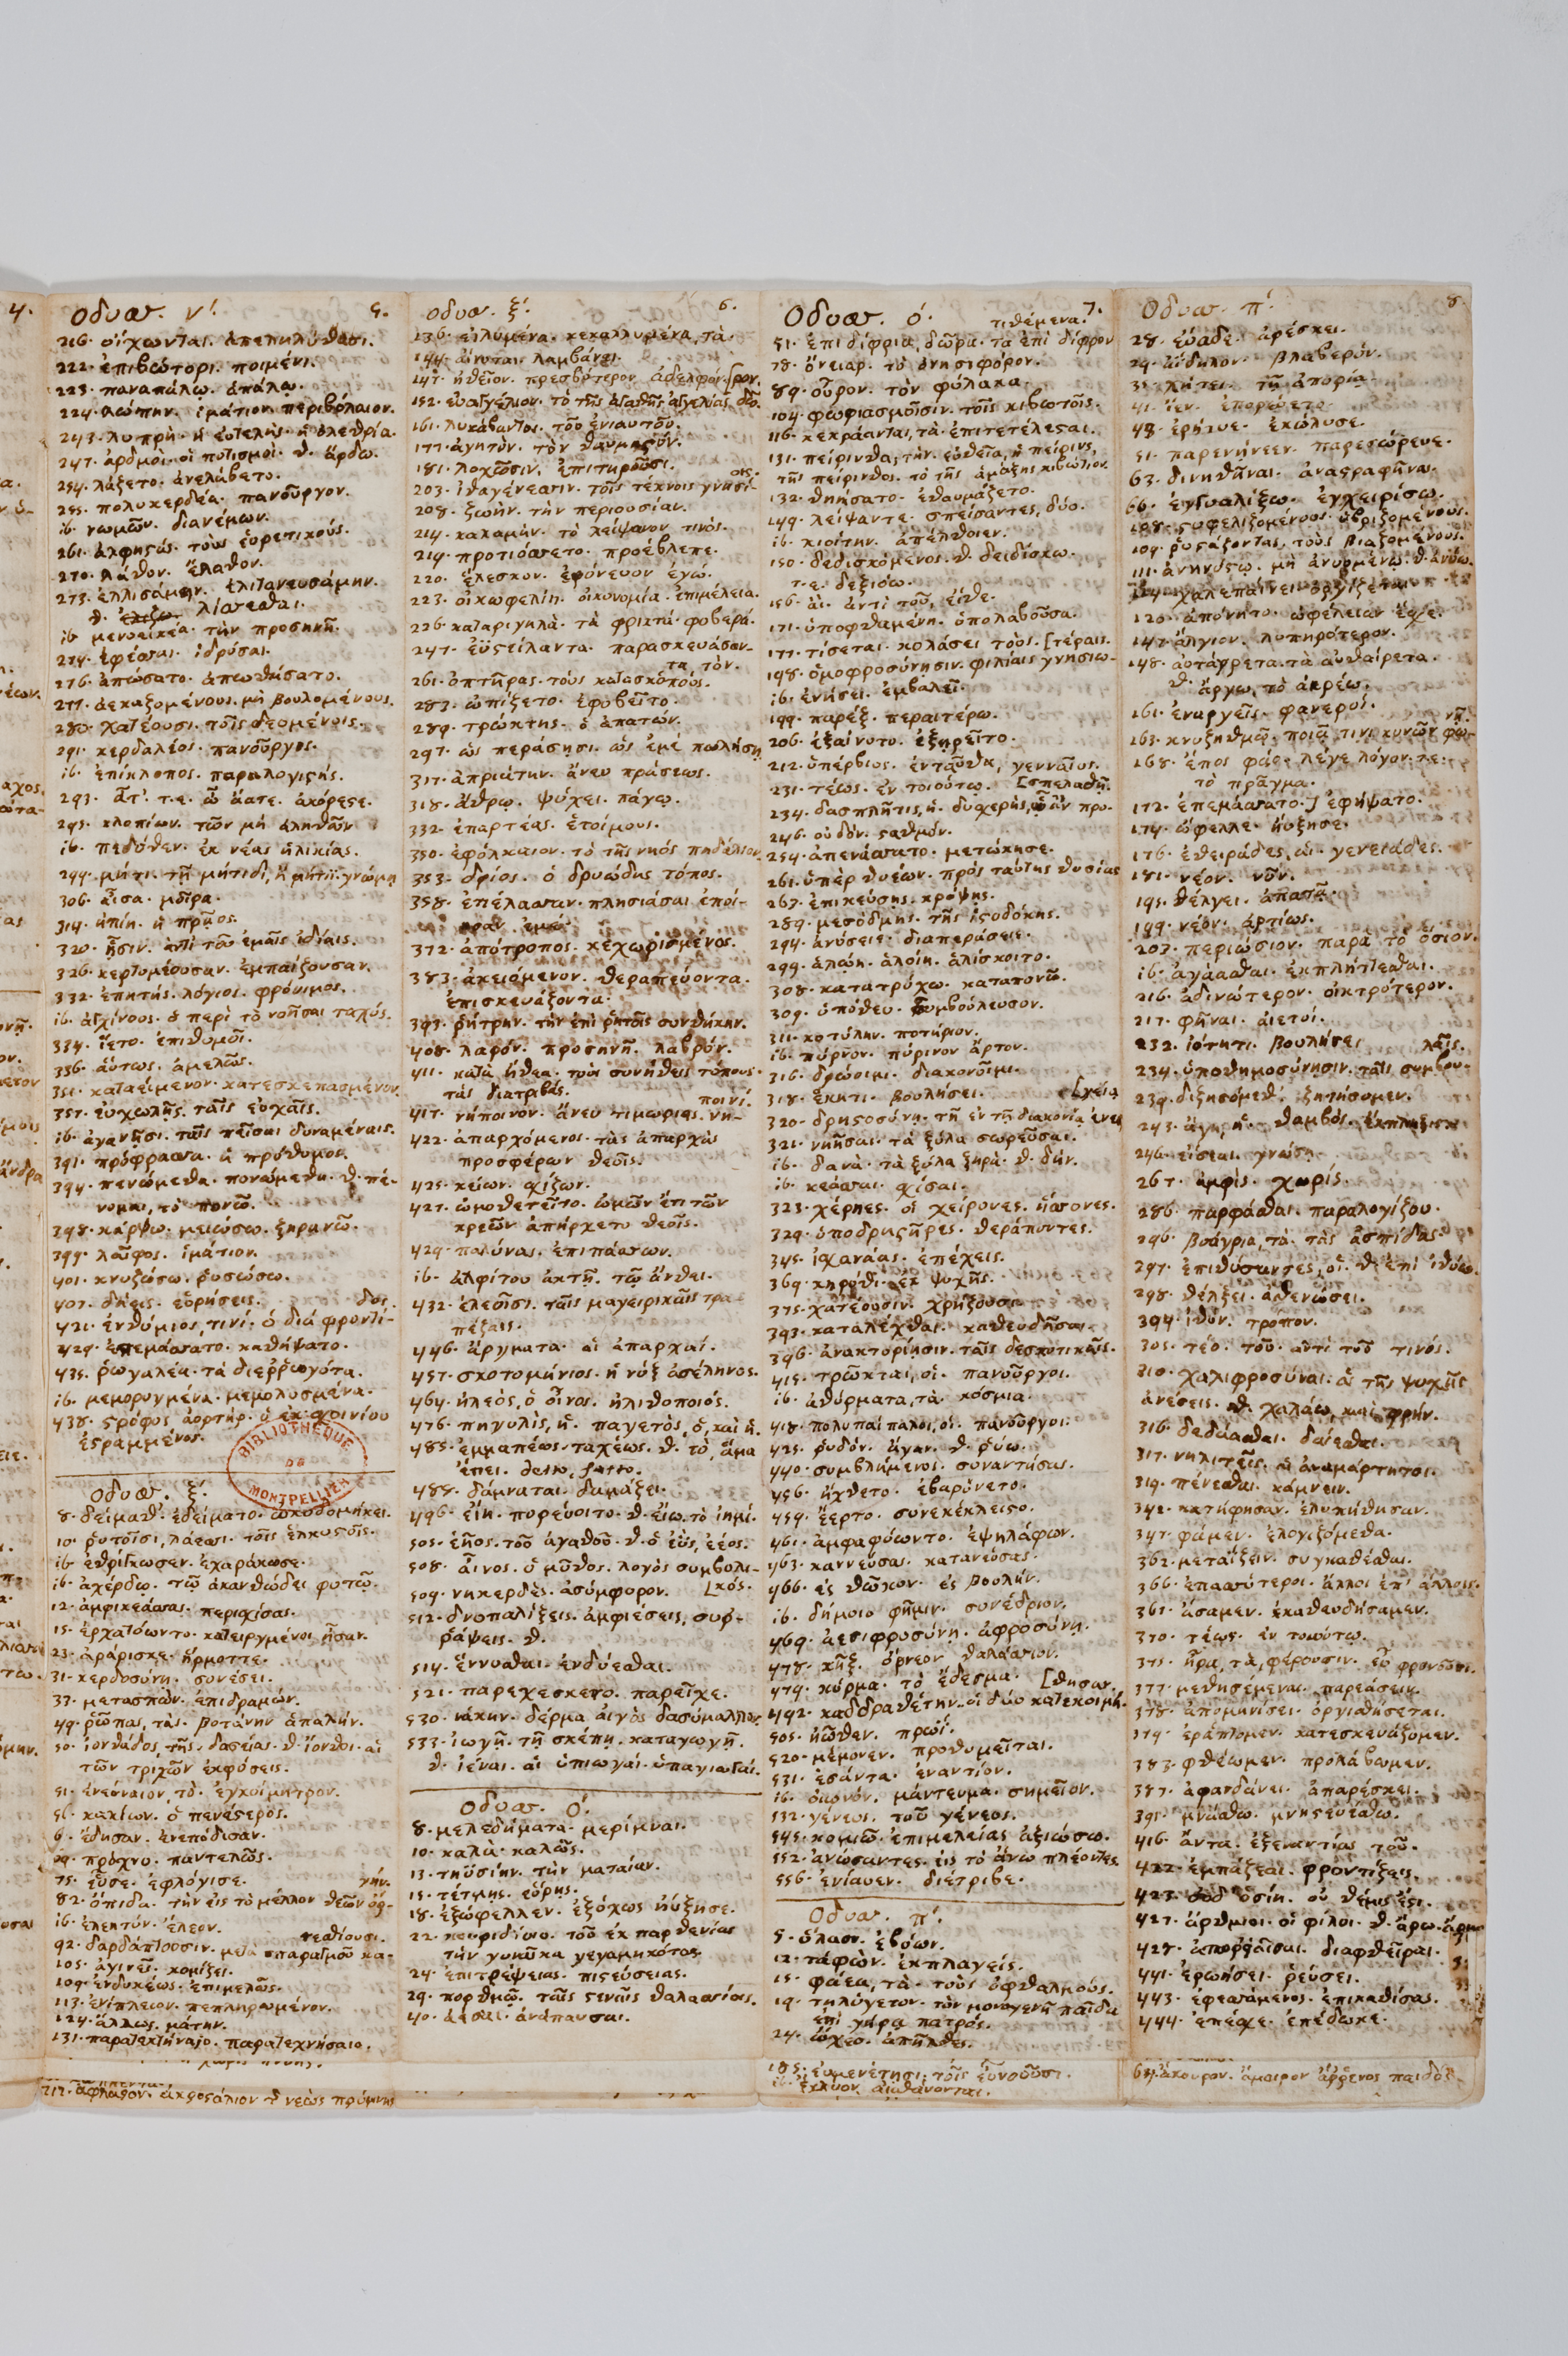 Οδυσσ. ν΄. 5.
216. οἴχωνται. ἀπεληλύθασι.
222. ἐπιβώτορι. ποιμένι.
223. παναπάλῳ. ἁπάλῳ.
224. λώπην. ἱμάτιον περιβόλαιον.
243. λυπρὴ. ἡ εὐτελὴς. ἡ ὀλεθρία.
247. ἀρδμοὶ. οἱ ποτισμοὶ. θ. ἄρδω.
254. λάζετο. ἀνελάβετο.
255. πολυκερδέα. πανοῦργον.
ib. νωμῶν. διανέμων.
261. ἀλφηστάς. τοὺς εὑρετικούς.
270. λάθον. ἔλαθον.
273. ἐλλισάμην. ἐλιτανευσάμην.
θ. λίσσεσθαι.
ib. μενοεικέα. τὴν προσηνῆ.
274. ἐφέσσαι. ἱδρύσαι.
276. ἀπώσατο. ἀπωθήσατο.
277. ἀεκαζομένους. μὴ βουλομένους.
280. χατέουσι. τοῖς δεομένοις.
291. κερδαλέος. πανοῦργος.
ib. ἐπίκλοπος. παραλογιστής.
293. ἆτ'. τ.ε. ὦ ἄατε. ἀκόρεστε.
295. κλοπίων. τῶν μὴ ἀληθῶν
ib. πεδόθεν. ἐκ νέας ἡλικίας.
299. μήτι. τῇ μήτιδι, ἢ μήτιϊ. γνώμῃ
306. αἶσα. μοῖρα.
314. ἠπίη. ἡ πρᾷος.
320. ᾗσιν. ἀντὶ τοῦ ἐμαῖς ἰδίαις.
326. κερτομέουσαν. ἐμπαίζουσαν.
332. ἐπητής. λόγιος. φρόνιμος.
ib. ἀγχίνοος. ὁ περὶ τὸ νοῆσαι ταχύς.
334. ἵετο. ἐπιθυμοῖ.
336. αὕτως. ἀμελῶς.
351. καταείμενον. κατεσκεπασμένον.
357. εὐχωλῇς. ταῖς εὐχαῖς.
ib. ἀγανῇσι. ταῖς πεῖσαι δυναμέναις.
391. πρόφρασσα. ἡ πρόθυμος.
394. πενώμεθα. πονώμεθα. θ. πέ-
νομαι, τὸ πονῶ.
398. κάρψω. μειώσω. ξηρανῶ.
399. λαῖφος. ἱμάτιον.
401. κνυζώσω. ῥυσώσω.
407. δήεις. εὑρήσεις. δος.
421. ἐνθύμιος, τινί. ὁ διὰ φροντί-
429. ἐπεμάσσατο. καθήψατο.
435. ῥωγαλέα. τὰ διεῤῥωγότα.
ib. μεμορυγμένα. μεμολυσμένα.
438. στρόφος ἀορτήρ. ὁ ἐκ σχοινίου
ἐστραμμένος.
BIBLIOTHEQUE DE MONTPELLIER
Οδυσσ. ξ΄.
8. δείμαθ'. ἐδείματο. ᾠκοδομήκει.
10. ῥυτοῖσι, λάεσσι. τοῖς ἑλκυστοῖς.
ib. ἐθρίγκωσεν. ἐχαράκωσε.
ib. ἀχέρδῳ. τῷ ἀκανθώδει φυτῷ.
12. ἀμφικεάσσας. περισχίσας.
15. ἐρχατόωντο. κατειργμένοι ἦσαν.
23. ἀράρισκε. ἥρμοττε.
31. κερδοσύνῃ. συνέσει.
33. μετασπών. ἐπιδραμών.
49. ῥῶπας, τὰς. βοτάνην ἁπαλήν.
50. ἰονθάδος, τῆς. δασείας. θ. ἴονθοι. αἱ
τῶν τριχῶν ἐκφύσεις.
51. ἐνεύναιον, τὸ. ἐγκοίμητρον.
56. κακίων. ὁ πενέστερος.
6 . ἔδησαν. ἐνεπόδισαν.
69. πρόχνυ. παντελῶς.
75. εὗσε. ἐφλόγισε. γήν.
82. ὄπιδα. τὴν εἰς τὸ μέλλον θεῶν ὀρ-
ib. ἐλεητύν. ἔλεον. τεσθίουσι.
92. δαρδάπτουσιν. μετὰ σπαραγμοῦ κα-
105. ἀγινεῖ. κομίζει.
109. ἐνδυκέως. ἐπιμελῶς.
113. ἐνίπλειον. πεπληρωμένον.
124. ἄλλως. μάτην.
131. παρατεκτήναιο. παρατεχνήσαιο.
217. ἄφλαστον. ἀκροστόλιον τῆς νεὼς πρύμνης
Οδυσσ. ξ΄. 6.
136. εἰλυμένα. κεκαλυμμένα, τὰ.
144. αἴνυται. λαμβάνει.
147. ἠθεῖον. πρεσβύτερον ἀδελφόν. [ρον.
152. εὐαγγέλιον. τὸ τῆς ἀγαθῆς ἀγγελίας δῶ.
161. λυκάβαντος. τοῦ ἐνιαυτοῦ.
177. ἀγητόν. τὸν θαυμαστόν.
181. λοχῶσιν. ἐπιτηροῦσι. οις.
203. ἰθαγένεσσιν. τοῖς τέκνοις γνησί-
208. ζωὴν. τὴν περιουσίαν.
214. καλάμην. τὸ λείψανον τινός.
219. προτιόσσετο. προέβλεπε.
220. ἕλεσκον. ἐφόνευον ἐγώ.
223. οἰκωφελίη. οἰκονομία. ἐπιμέλεια.
226. καταριγηλὰ. τὰ φρικτὰ. φοβερά.
247. ἐϋστείλαντα. παρασκευάσαν-
τα, τόν.
261. ὀπτῆρας. τοὺς κατασκόπους.
283. ὠπίζετο. ἐφοβεῖτο.
289. τρώκτης. ὁ ἀπατών.
297. ὡς περάσησι. ὡς ἐμὲ πωλήσῃ
317. ἀπριάτην. ἄνευ πράσεως.
318. αἴθρῳ. ψύχει. πάγῳ.
332. ἐπαρτέας. ἑτοίμους.
350. ἐφόλκαιον. τὸ τῆς νηός πηδάλιον.
353. δρίος. ὁ δρυώδης τόπος.
358. ἐπέλασσαν. πλησιάσαι ἐποί-
ησαν ἐμέ.
372. ἀπότροπος. κεχωρισμένος.
383. ἀκειόμενον. θεραπεύοντα.
ἐπισκευάζοντα.
393. ῥήτρην. τὴν ἐπὶ ῥητοῖς συνθήκην.
408. λαρόν. προσηνῆ. λαβρόν.
411. κατὰ ἤθεα. τοὺς συνήθεις τόπους.
τὰς διατριβάς. ποινί.
417. νήποινον. ἄνευ τιμωρίας. νη-
422. ἀπαρχόμενος. τὰς ἀπαρχὰς
προσφέρων θεοῖς.
425. κείων. σχίζων.
427. ὠμοθετεῖτο. ὠμῶν ἔτι τῶν
κρεῶν ἀπήρχετο θεοῖς.
429. παλύνας. ἐπιπάσσων.
ib. ἀλφίτου ἀκτῇ. τῷ ἄνθει.
432. ἐλεοῖσι. ταῖς μαγειρικαῖς τρα-
πέζαις.
446. ἄργματα. αἱ ἀπαρχαί.
457. σκοτομήνιος. ἡ νὺξ ἀσέληνος.
464. ἠλεὸς, ὁ οἶνος. ἠλιθοποιός.
476. πηγυλὶς, ἡ. παγετὸς, ὁ, καὶ ἡ.
485. ἐμμαπέως. ταχέως. θ. τὸ, ἅμα
ἔπει. detto, fatto.
488. δάμναται. δαμάζει.
496. εἴη. πορεύοιτο. θ. εἴω. τὸ ἴημι.
505. ἑῆος. τοῦ ἀγαθοῦ. θ. ὁ ἐῢς, ἐέος.
508. αἶνος. ὁ μῦθος. λόγος συμβολι-
509. νηκερδές. ἀσύμφορον. [κός.
512. δνοπαλίξεις. ἀμφιέσεις, συῤ-
ῥάψεις. θ.
514. ἕννυσθαι. ἐνδύεσθαι.
521. παρεχέσκετο. παρεῖχε.
530. νάκην. δέρμα αἰγὸς δασύμαλλον.
533. ἰωγῇ. τῇ σκέπῃ. καταγωγῇ.
θ. ἰέναι. αἱ ὑπιωγαί. ὑπαγωγαί.
Οδυσσ. Ο΄.
8. μελεδήματα. μερίμναι.
10. καλὰ. καλῶς.
13. τηϋσίην. τὴν ματαίαν.
15. τέτμης. εὕρῃς.
18. ἐξώφελλεν. ἐξόχως ηὔξησε.
22. κουριδίοιο. τοῦ ἐκ παρθενίας
τὴν γυναῖκα γεγαμηκότος.
24. ἐπιτρέψειας. πιστεύσειας.
29. πορθμῷ. ταῖς στεναῖς θαλασσίαις.
40. ἀέσαι. ἀνάπαυσαι.
Οδυσσ. ο΄. τιθέμενα. 7.
51. ἐπιδίφρια, δῶρα. τὰ ἐπὶ δίφρον
78. ὄνειαρ. τὸ ὀνησιφόρον.
89. οὖρον. τὸν φύλακα.
104. φωριαμοῖσιν. τοῖς κιβωτοῖς.
116. κεκράανται, τὰ. ἐπιτετέλεσται.
131. πείρινθα, τὴν. εὐθεῖα, ἡ πείρινς,
τῆς πείρινθος. τὸ τῆς ἁμάξης κιβώτιον.
132. θηήσατο. ἐθαυμάζετο.
149. λείψαντε. σπείσαντες, δύο.
ib. κιοίτην. ἀπέλθοιεν.
150. δεδισκόμενος. θ. δειδίσκω.
τ.ε. δεξιόω.
156. αἲ. ἀντὶ τοῦ, εἴθε.
171. ὑποφθαμένη. ὑπολαβοῦσα.
177. τίσεται. κολάσει τοὺς. [τέραις.
198. ὁμοφροσύνησιν. φιλίαις γνησιω-
ib. ἐνήσει. ἐμβαλεῖ.
199. παρέξ. περαιτέρω.
206. ἐξαίνυτο. ἐξῃρεῖτο.
212. ὑπέρβιος. ἐνταῦθα, γενναῖος.
231. τέως. ἐν τοιούτῳ. [σπελασθῇ.
234. δασπλῆτις, ἡ. δυσχερής, ᾗ ἄν προ-
246. οὐδόν. σταθμόν.
254. ἀπενάσσατο. μετῴκησε.
261. ὑπὲρ θυέων. πρὸς ταύτης θυσίας
263. ἐπικεύσῃς. κρύψῃς.
289. μεσόδμης. τῆς ἱστοδόκης.
294. ἀνύσειε. διαπεράσειε.
299. ἁλῴη. ἁλοίη. ἁλίσκοιτο.
308. κατατρύχω. καταπονῶ.
309. ὑπόθευ. συμβούλευσον.
311. κοτύλην. ποτήριον.
ib. πύρνον. πύρινον ἄρτον.
316. δρώοιμι. διακονοῖμι.
318. ἕκητι. βουλήσει.
320. δρηστοσύνῃ. τῇ ἐν τῇ διακονίᾳ ἐνερ [γείᾳ
321. νηῆσαι. τὰ ξύλα σωρεῦσαι.
ib. δανὰ. τὰ ξύλα ξηρὰ. θ. δήν.
ib. κεάσσαι. σχίσαι.
323. χέρηες. οἱ χείρονες. ἥσσονες.
329. ὑποδρηστῆρες. θεράποντες.
345. ἰσχανάας. ἐπέχεις.
369. κηρόθι. ἐκ ψυχῆς.
375. χατέουσιν. χρῄζουσι.
393. καταλέχθαι. καθευδῆσαι.
396. ἀνακτορίησιν. ταῖς δεσποτικαῖς.
415. τρῶκται, οἱ. πανοῦργοι.
ib. ἀθύρματα, τὰ. κόσμια.
418. πολυπαίπαλοι, οἱ. πανοῦργοι.
425. ῥυδόν. ἄγαν. θ. ῥύω.
440. συμβλήμενος. συναντήσας.
456. ἤχθετο. ἐβαρύνετο.
459. ἔερτο. συνεκέκλειστο.
461. ἀμφαφόωντο. ἐψηλάφων.
463. καννεύσας. κατανεύσας.
466. ἐς θῶκον. ἐς βουλήν.
ib. δήμοιο φῆμιν. συνέδριον.
469. ἀεσιφροσύνῃ. ἀφροσύνῃ.
478. κῆξ. ὄρνεον θαλάσσιον.
479. κύρμα. τὸ ἔδεσμα. [θησαν.
492. καδδραθέτην. οἱ δύο κατεκοιμή-
505. ἠῶθεν. πρωΐ.
520. μέμονεν. προθυμεῖται.
531. ἐσάντα. ἐναντίον.
ib. οἰωνόν. μάντευμα. σημεῖον.
532. γένευς. τοῦ γένεος.
545. κομιῶ. ἐπιμελείας ἀξιώσω.
552. ἀνώσαντες. εἰς τὸ ἄνω πλέοντες.
556. ἐνίαυεν. διέτριβε.
Οδυσσ. π΄.
5. ὕλαον. ἐβόων.
12. ταφών. ἐκπλαγείς.
15. φάεα, τὰ. τοὺς ὀφθαλμούς.
19. τηλύγετον. τὸν μονογενῆ παῖδα
ἐπὶ γήρᾳ πατρός.
24. ᾤχεο. ἀπῆλθες.
185. εὐμενέτησι. τοῖς εὐνοοῦσι.
ἔκλυον. αἰσθάνονται.
Οδυσσ. π΄. 8.
28. εὔαδε. ἀρέσκει.
29. ἀΐδηλον. βλαβερόν.
35. χήτει. τῇ ἀπορίᾳ.
41. ἴεν. ἐπορεύετο.
43. ἐρήτυε. ἐκώλυσε.
51. παρενήνεεν. παρεσώρευε.
63. δινηθῆναι. ἀναστραφῆναι.
66. ἐγγυαλίξω. ἐγχειρίσω.
108. στυφελιζομένους. ὑβριζομένους.
109. ῥυστάζοντας, τοὺς βιαζομένους.
111. ἀνηνύστῳ. μὴ ἀνυομένῳ. θ. ἀνύω.
114. χαλεπαίνει. ὀργίζεται.
120. ἀπόνητο. ὠφέλειαν ἔσχε.
147. ἄλγιον. λυπηρότερον.
148. αὐτάγρετα. τὰ αὐθαίρετα.
θ. ἄργω, τὸ ἀγρέω.
161. ἐναργεῖς. φανεροί. νῇ.
163. κνυζηθμῷ. ποιᾷ τινι κυνῶν φω-
168. ἔπος φάσθε. λέγε λόγον. τ.ε.
τὸ πρᾶγμα.
172. ἐπεμάσσατο. ἐφήψατο.
174. ὤφελλε. ηὔξησε.
176. ἐθειράδες, αἱ. γενειάδες.
181. νέον. νῦν.
195. θέλγει. ἀπατᾷ.
199. νέον. ἀρτίως.
203. περιώσιον. παρὰ τὸ ὅσιον.
ib. ἀγάασθαι. ἐκπλήττεσθαι.
216. ἀδινώτερον. οἰκτρότερον.
217. φῆναι. ἀετοί.
232. ἰότητι. βουλήσει λαῖς.
234. ὑποθημοσύνησιν. ταῖς συμβου-
239. διζησόμεθ'. ζητήσομεν.
243. ἄγη, ἡ. θαμβός. ἔκπληξις.
246. εἴσεαι. γνώσῃ.
267. ἀμφὶς. χωρίς.
286. παρφάσθαι. παραλογίζου.
296. βοάγρια, τὰ. τὰς ἀσπίδας.
297. ἐπιθύσαντες, οἱ. θ. ἐπὶ ἰθύω.
298. θέλξει. ἀσθενώσει.
304. ἰθύν. τρόπον.
305. τέο. τοῦ. ἀντὶ τοῦ τινός.
310. χαλιφροσύναι. αἱ τῆς ψυχῆς
ἀνέσεις. θ. χαλάω, καὶ φρήν.
316. δεδάασθαι. δαίεσθαι.
317. νηλιτεῖς. αἱ ἀναμάρτητοι.
319. πένεσθαι. κάμνειν.
342. κατήφησαν. ἐλυπήθησαν.
347. φάμεν. ἐλογιζόμεθα.
362. μεταΐζειν. συγκαθέσθαι.
366. ἐπασσύτεροι. ἄλλοι ἐπ' ἄλλοις.
367. ἄσαμεν. ἐκαθευδήσαμεν.
370. τέως. ἐν τοιούτῳ.
375. ἦρα, τὰ, φέρουσιν. εὖ φρονοῦσι.
377. μεθησέμεναι. παρεάσειν.
378. ἀπομηνίσει. ὀργισθήσεται.
379. ἐράπτομεν. κατεσκευάζομεν.
383. φθέωμεν. προλάβωμεν.
387. ἀφανδάνει. ἀπαρέσκει.
391. μνάσθω. μνηστευέσθω.
416. ἄντα. ἐξεναντίας τοῦ.
422. ἐμπάζεαι. φροντίζεις.
423. οὐδ' ὁσίη. οὐ θέμις ἐστι.
427. ἄρθμιοι. οἱ φίλοι. θ. ἄρω.
428. ἀποῤῥαῖσαι. διαφθεῖραι.
441. ἐρωήσει. ῥεύσει.
443. ἐφεσσάμενος. ἐπικαθίσας.
444. ἐπέσχε. ἐπέδωκε.
64. ἄκουρον. ἄμοιρον ἄῤῥενος παιδός.